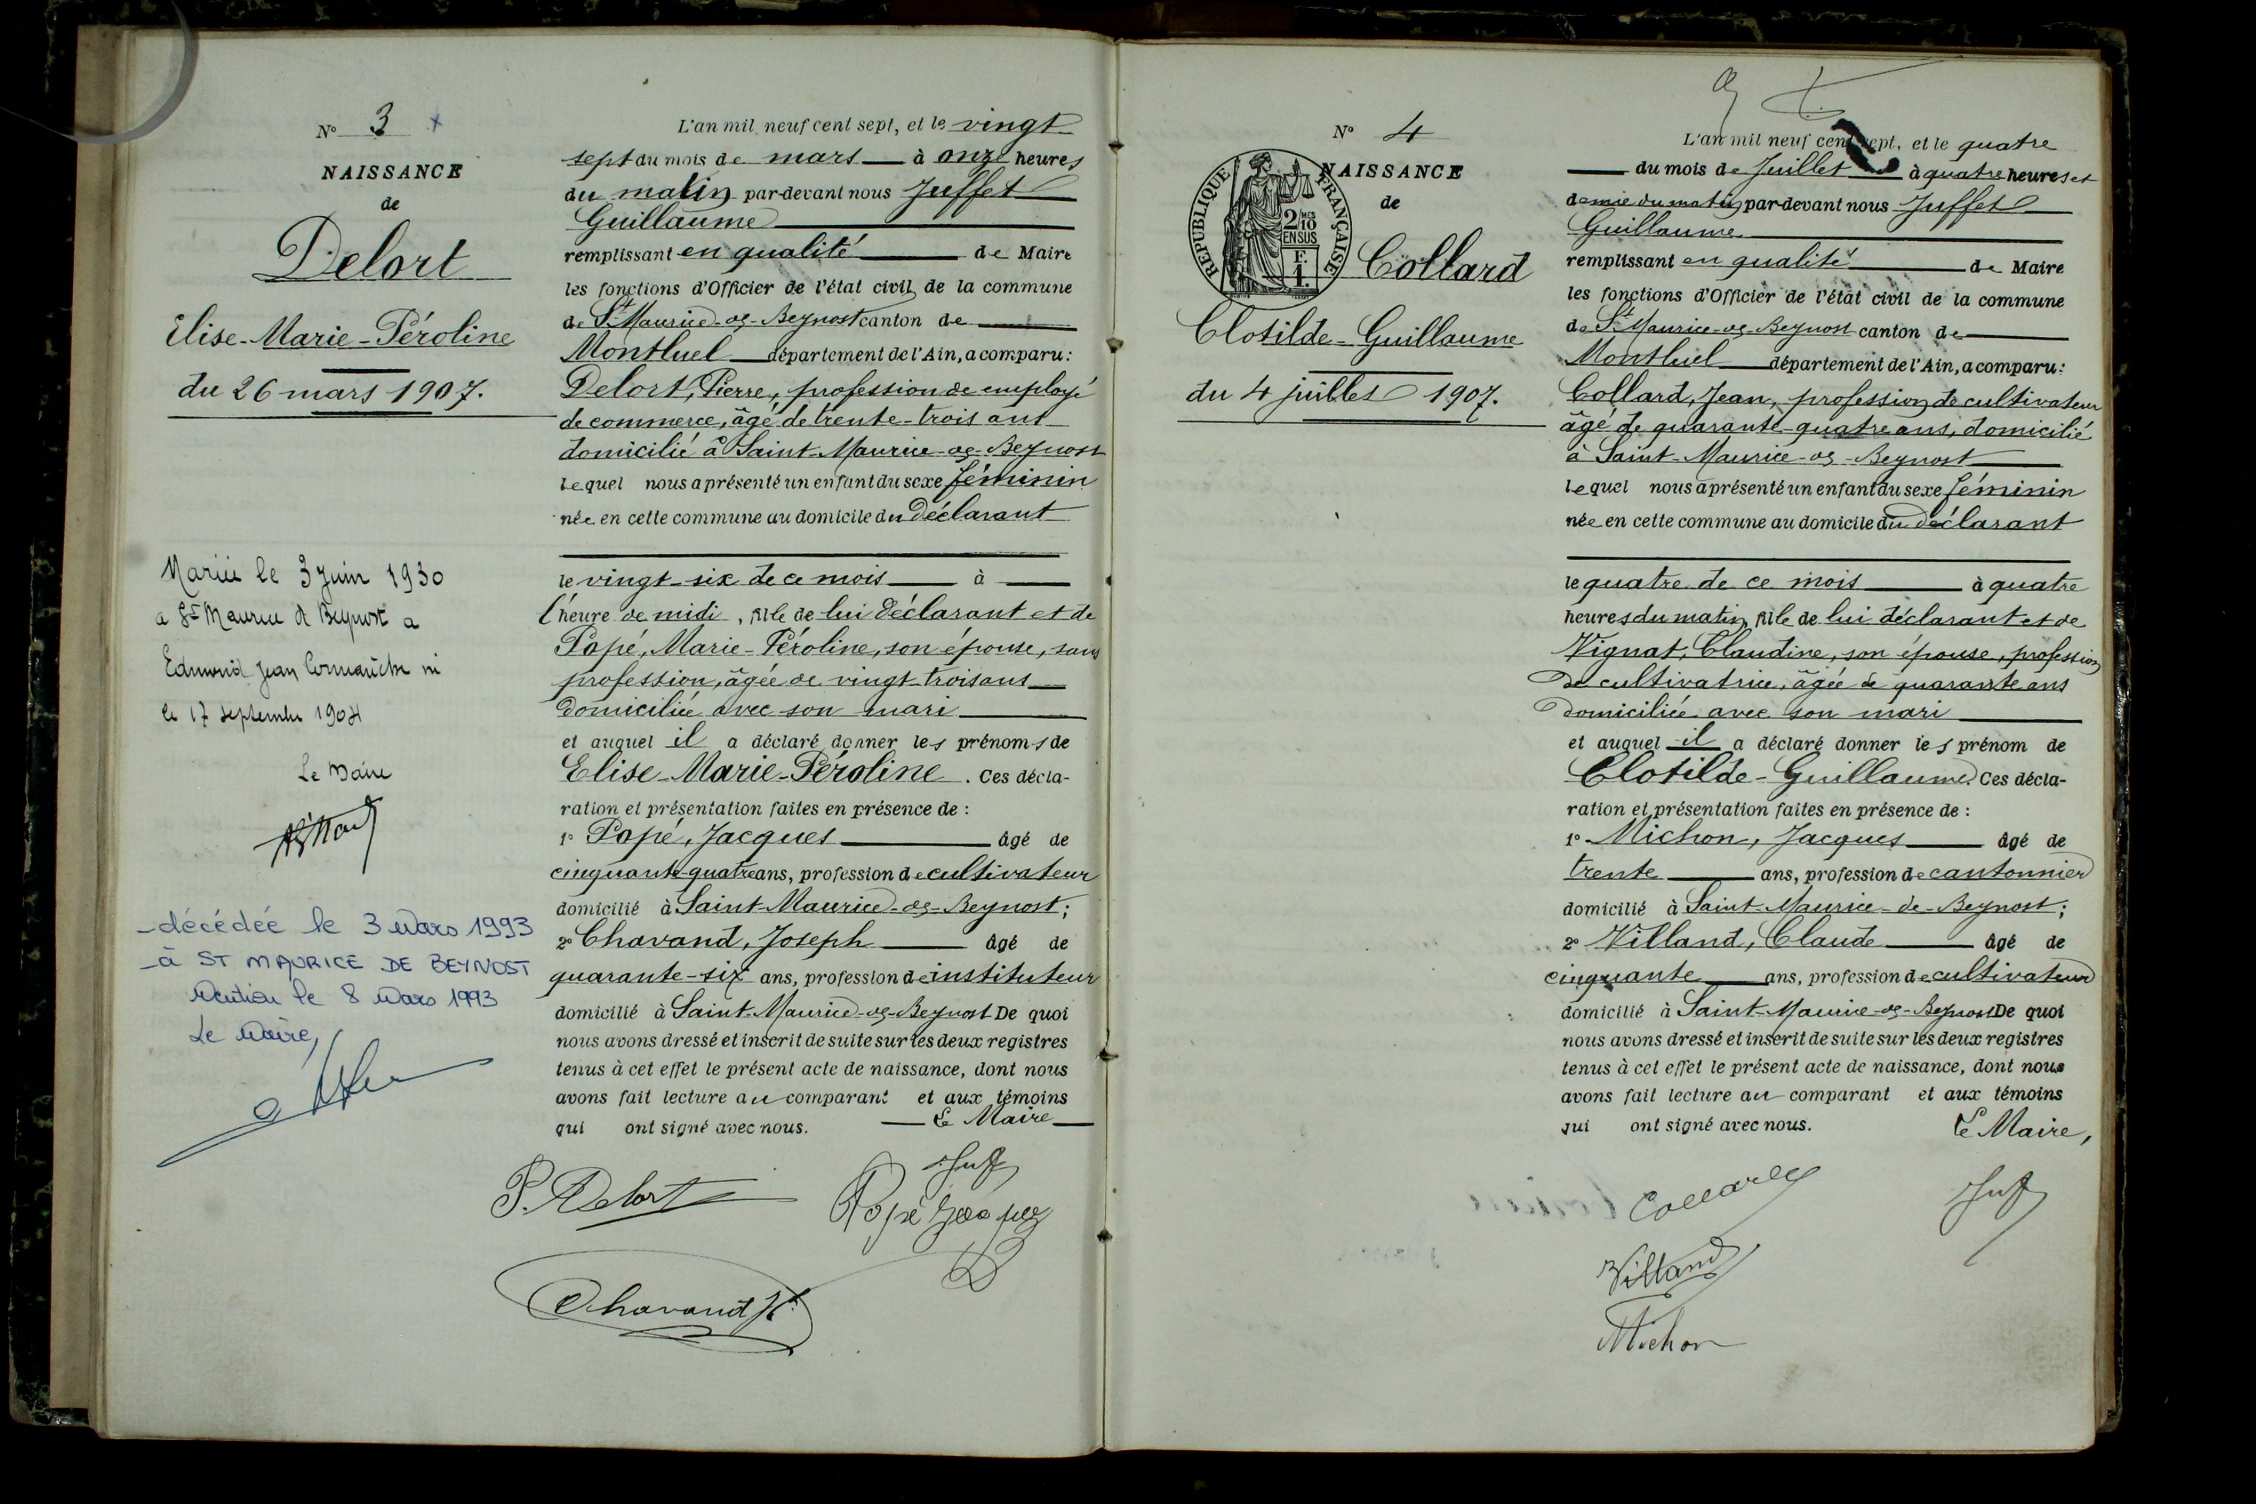 N° 3
NAISSANCE
de
Delort
Elise-Marie-Péroline
du 26 mars 1907.
Mariée le 3 Juin 1930
a St Maurice de Beynost a
Edmond Jean né
le 17 septembre 1904
Le Maire
décédée le 3 Mars 1993
à ST MAURICE DE BEYNOST
Mention le 8 Mars 1993
Le Maire,
L'an mil neuf cent sept, et le vingt
sept du mois de mars à onze heures
du matin par-devant nous Juffet
Guillaume
remplissant en qualité de Maire
les fonctions d'Officier de l'état civil de la commune
de St-Maurice-de-Beynost canton de
Montluel département de l'Ain, a comparu:
Delort, Pierre, profession de employé
de commerce, âgé de trente-trois ans
domicilié à Saint-Maurice-de-Beynost
lequel nous a présenté un enfant du sexe féminin
née en cette commune au domicile du déclarant
le vingt-six de ce mois à
l'heure de midi, fille de lui déclarant et de
Papé, Marie-Péroline, son épouse, sans
profession, âgée de vingt-trois ans
domiciliée avec son mari
et auquel il a déclaré donner les prénoms de
Elise-Marie-Péroline. Ces décla-
ration et présentation faites en présence de :
1° Papé, Jacques âgé de
cinquante-quatre ans, profession de cultivateur
domicilié à Saint-Maurice-de-Beynost;
2° Chavand, Joseph âgé de
quarante-six ans, profession de instituteur
domicilié à Saint-Maurice-de-Beynost De quoi
nous avons dressé et inscrit de suite sur les deux registres
tenus à cet effet le présent acte de naissance, dont nous
avons fait lecture au comparant et aux témoins
qui ont signé avec nous. Le Maire
P. Delort
Juf
Papé Jacques
Chavand Jh
N° 4
NAISSANCE
de
RÉPUBLIQUE FRANÇAISE
2/10 MES
EN SUS
F.
1.
Collard
Clotilde-Guillaume
du 4 juillet 1907.
L'an mil neuf cent sept, et le quatre
du mois de Juillet à quatre heures et
demie du matin par-devant nous Juffet
Guillaume
remplissant en qualité de Maire
les fonctions d'Officier de l'état civil de la commune
de St-Maurice-de-Beynost canton de
Montluel département de l'Ain, a comparu:
Collard, Jean, profession de cultivateur
âgé de quarante-quatre ans, domicilié
à Saint-Maurice-de-Beynost
lequel nous a présenté un enfant du sexe féminin
née en cette commune au domicile du déclarant
le quatre de ce mois à quatre
heures du matin, fille de lui déclarant et de
Vignat, Claudine, son épouse, profession
de cultivatrice, âgée de quarante ans
domiciliée avec son mari
et auquel il a déclaré donner les prénom de
Clotilde-Guillaume. Ces décla-
ration et présentation faites en présence de :
1° Michon, Jacques âgé de
trente ans, profession de cantonnier
domicilié à Saint-Maurice-de-Beynost;
2° Villand, Claude âgé de
cinquante ans, profession de cultivateur
domicilié à Saint-Maurice-de-Beynost De quoi
nous avons dressé et inscrit de suite sur les deux registres
tenus à cet effet le présent acte de naissance, dont nous
avons fait lecture au comparant et aux témoins
qui ont signé avec nous. Le Maire,
Collard
Juf
Villand
Michon